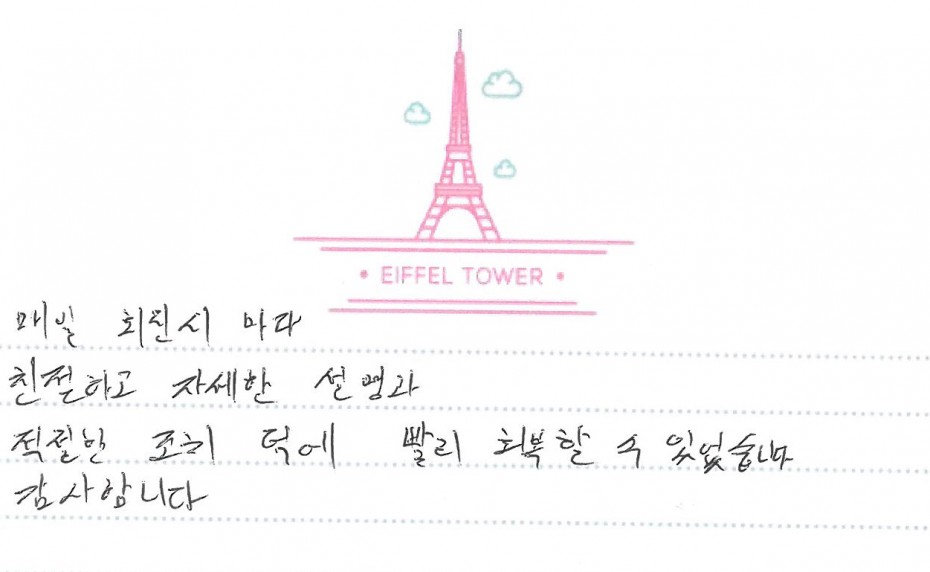 • EIFFEL TOWER •
매일 회진시 마다
친절하고 자세한 설명과
적절한 조치 덕에 빨리 회복할 수 있었습니다
감사합니다